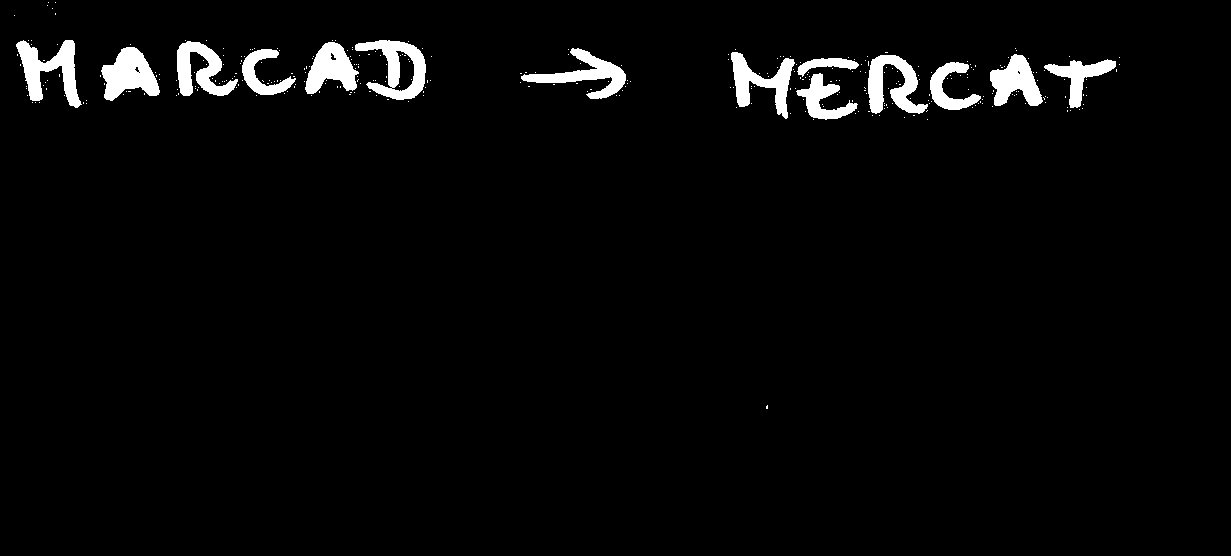 MARCAD → MERCAT